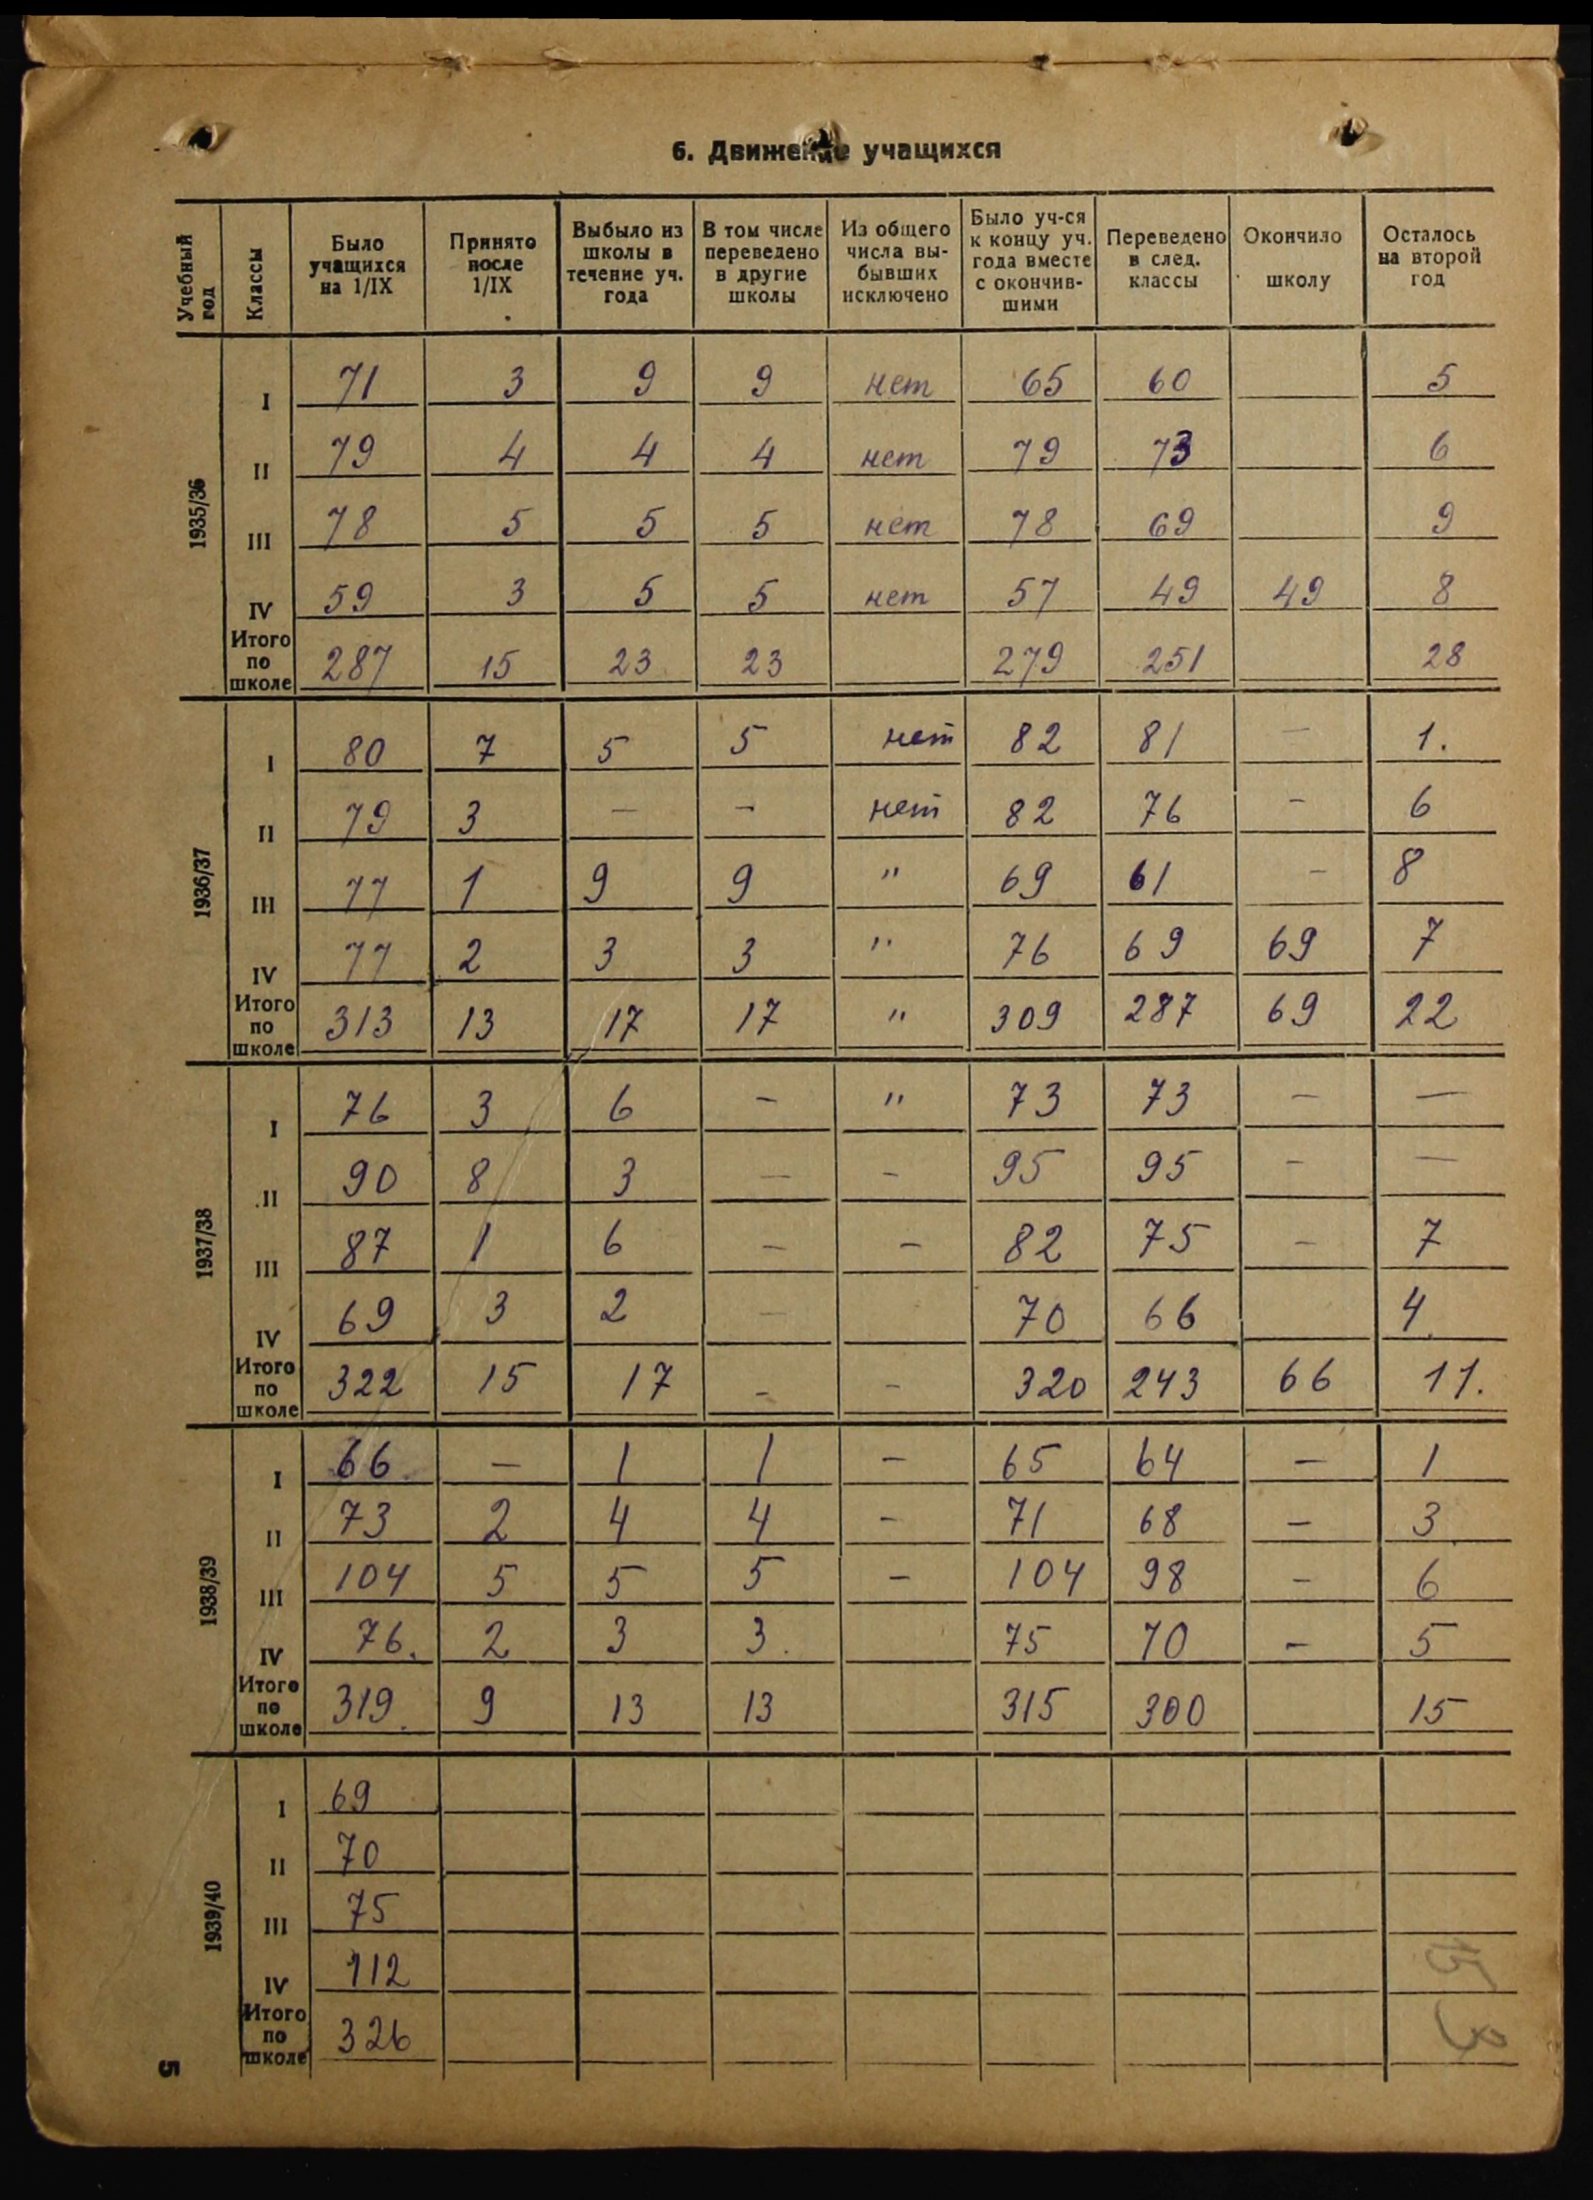 6. Движение учащихся
Учебный год | Классы | Было учащихся на 1/IX | Принято после 1/IX | Выбыло из школы в течение уч. года | В том числе переведено в другие школы | Из общего числа выбывших исключено | Было уч-ся к концу уч. года вместе с окончившими | Переведено в след. классы | Окончило школу | Осталось на второй год
1935/36
I 71 3 9 9 нет 65 60 5
II 79 4 4 4 нет 79 73 6
III 78 5 5 5 нет 78 69 9
IV 59 3 5 5 нет 57 49 49 8
Итого по школе 287 15 23 23 279 251 28
1936/37
I 80 7 5 5 нет 82 81 — 1.
II 79 3 — — нет 82 76 — 6
III 77 1 9 9 " 69 61 — 8
IV 77 2 3 3 " 76 69 69 7
Итого по школе 313 13 17 17 " 309 287 69 22
1937/38
I 76 3 6 — " 73 73 — —
II 90 8 3 — — 95 95 — —
III 87 1 6 — — 82 75 — 7
IV 69 3 2 — 70 66 4
Итого по школе 322 15 17 — — 320 243 66 11.
1938/39
I 66 — 1 1 — 65 64 — 1
II 73 2 4 4 — 71 68 — 3
III 104 5 5 5 — 104 98 — 6
IV 76. 2 3 3. 75 70 — 5
Итого по школе 319. 9 13 13 315 300 15
1939/40
I 69
II 70
III 75
IV 112
Итого по школе 326
5